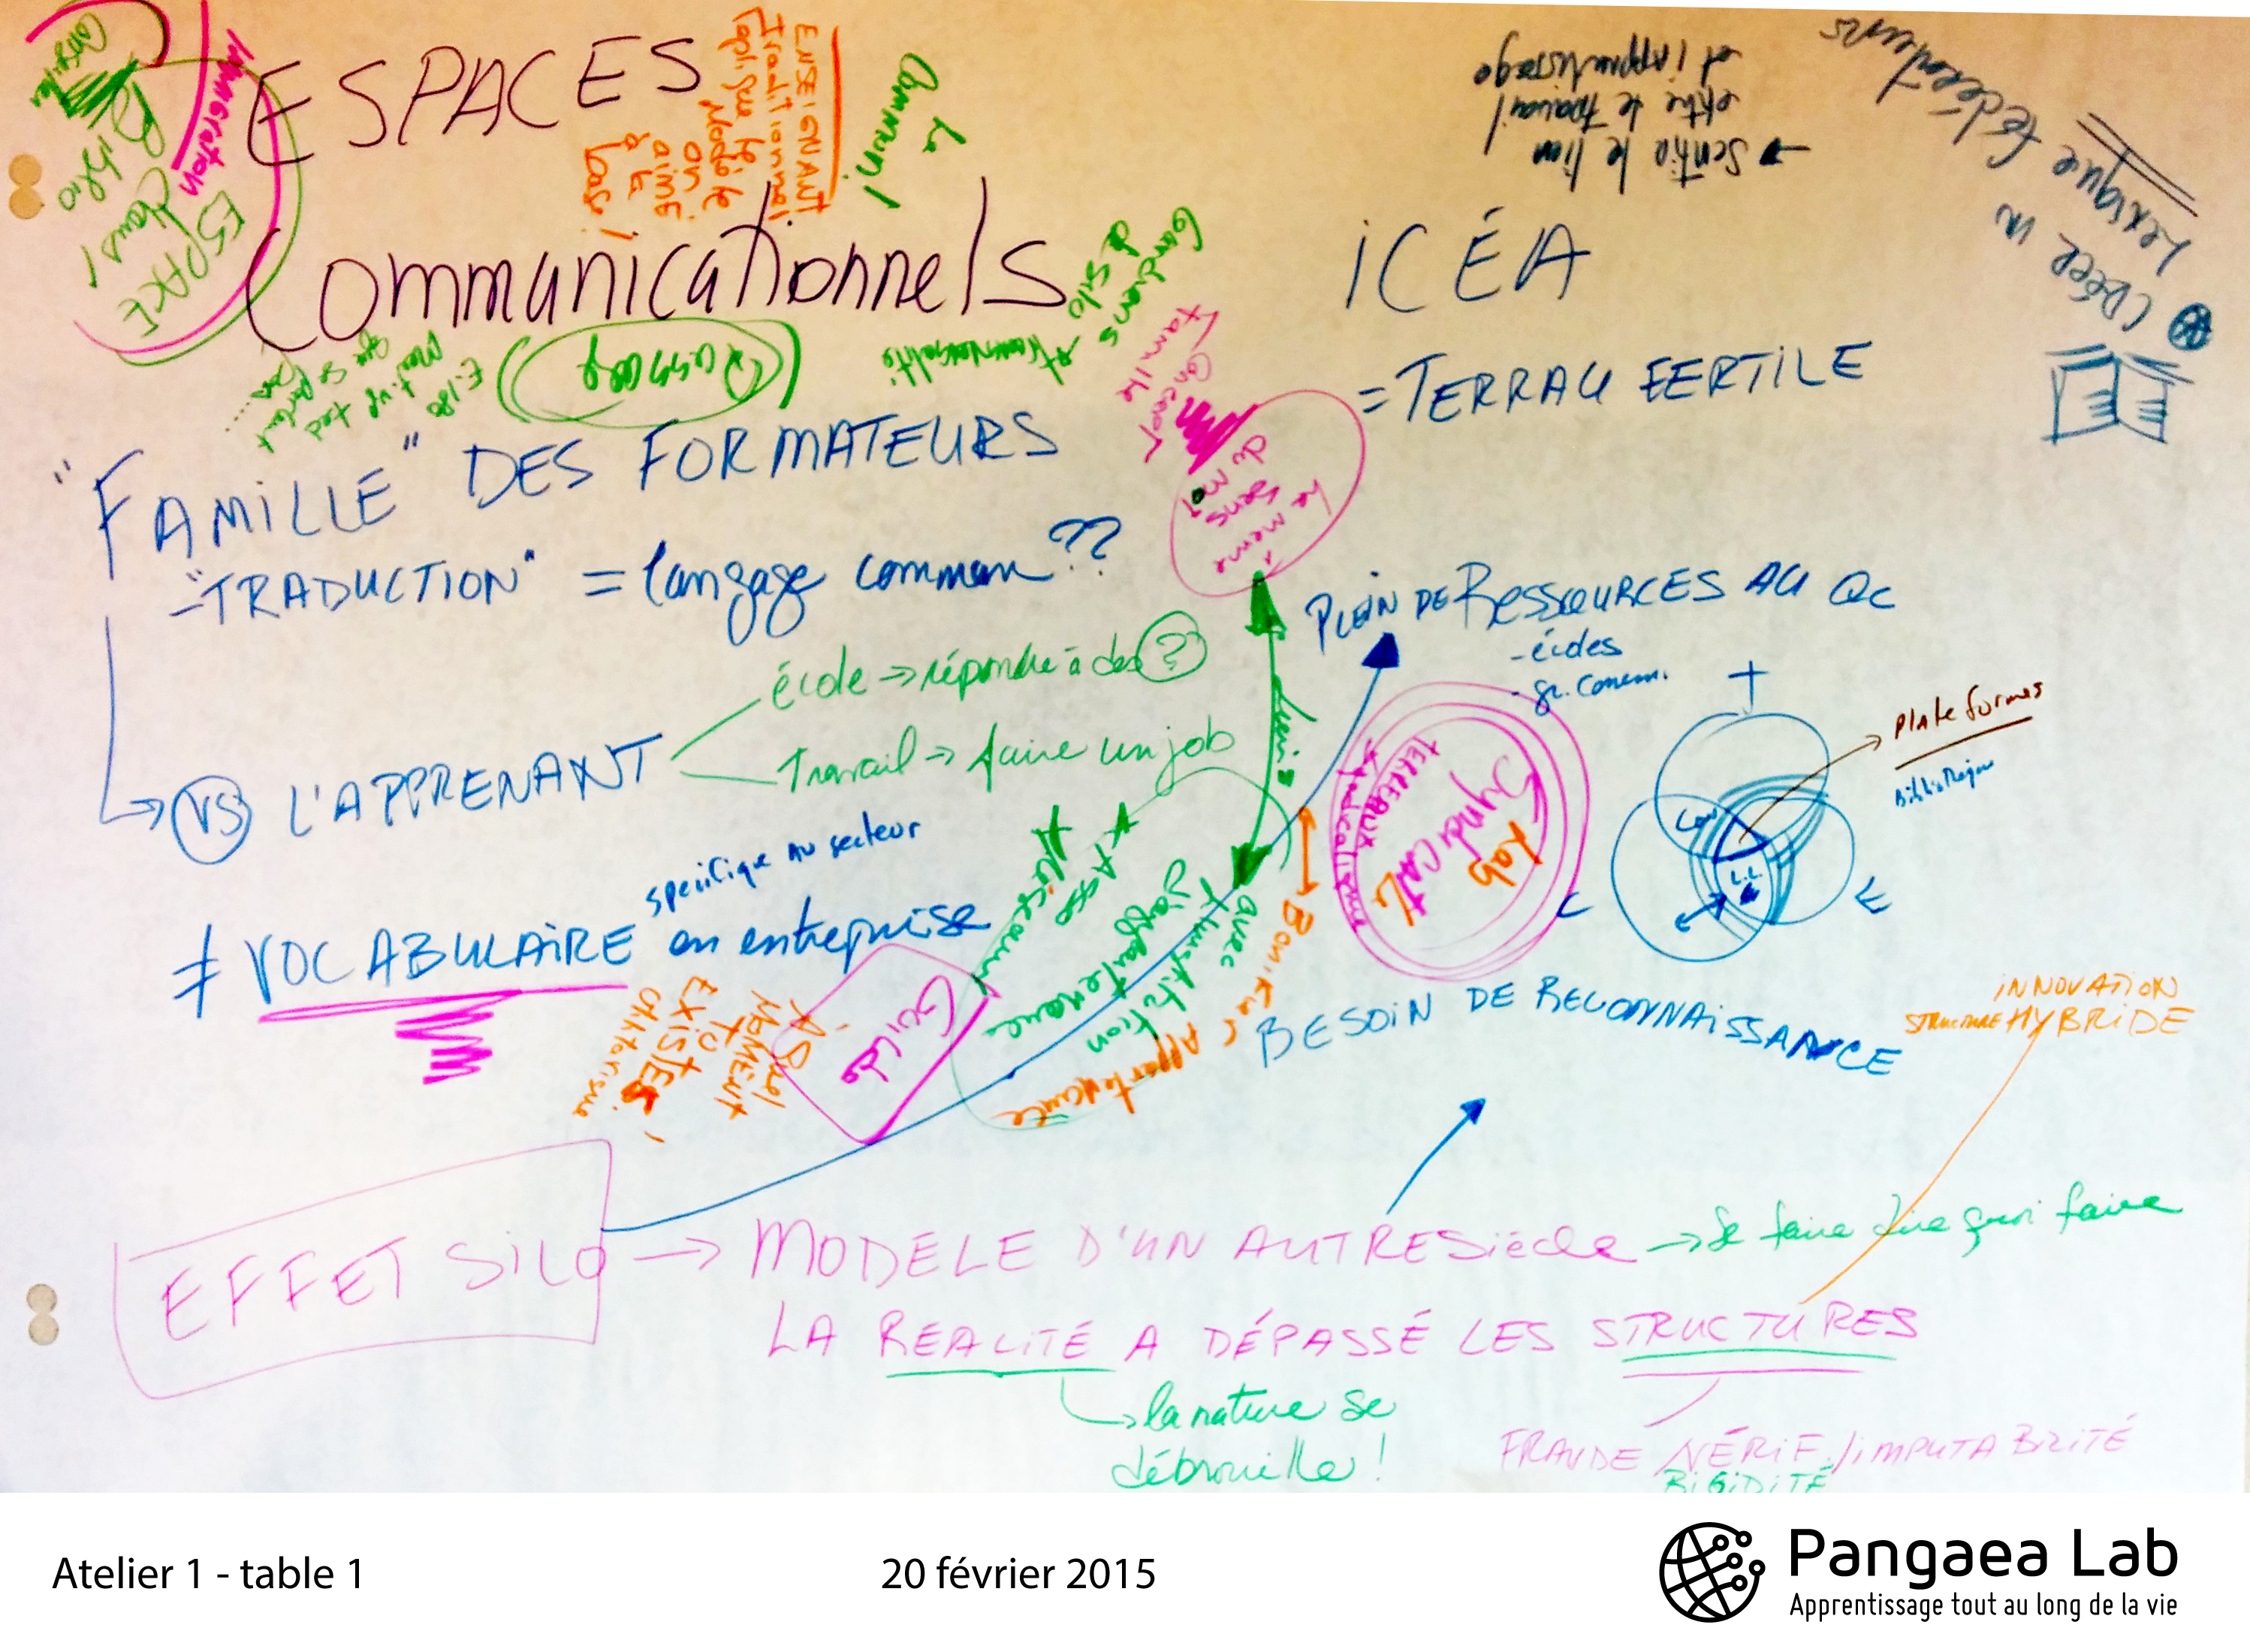 ESPACES
Communicationnels
ENSEIGNANT
Traditionnel
Modèle
on
aime
à la
base!
le
commun!
immigration
Biblio
dans!
ESPACE
→ Sentir le lien
entre le travail
et l'apprentissage
CRÉER UN
Lexique fédérateurs
iCÉA
= TERRAU FERTILE
Gardiens
de silo
transversalité
Famille
Concept
le meme
sens
du mot
"FAMiLLE" DES FORMATEURS
-"TRADUCTION" = langage commun ??
école → répondre à des ?
Travail → faire un job
VS L'APPRENANT
spécifique au secteur
≠ VOCABULAIRE en entreprise
PLEIN DE RESSOURCES AU QC
- écoles
- gr. comm.
Plateformes
Bibliothèque
+
C
E
L.L.
TERREAUX
Syndicalisme
Syndicat
Lab
Liens
Réseaux
Asso
d'appartenance
avec
l'institution
Bonifier
Appartenance
Guilde
À quel
MOMENT
TU
EXISTES!
BESOIN DE RECONNAISSANCE
INNOVATION
STRUCTURE HYBRIDE
EFFET SiLO → MODÈLE D'UN AUTRE Siècle → Se faire dire quoi faire
LA RÉALITÉ A DÉPASSÉ LES STRUCTURES
→ la nature se
débrouille !
FRAUDE VÉRIF./IMPUTABILITÉ
RIGIDITÉ
Atelier 1 - table 1
20 février 2015
Pangaea Lab
Apprentissage tout au long de la vie